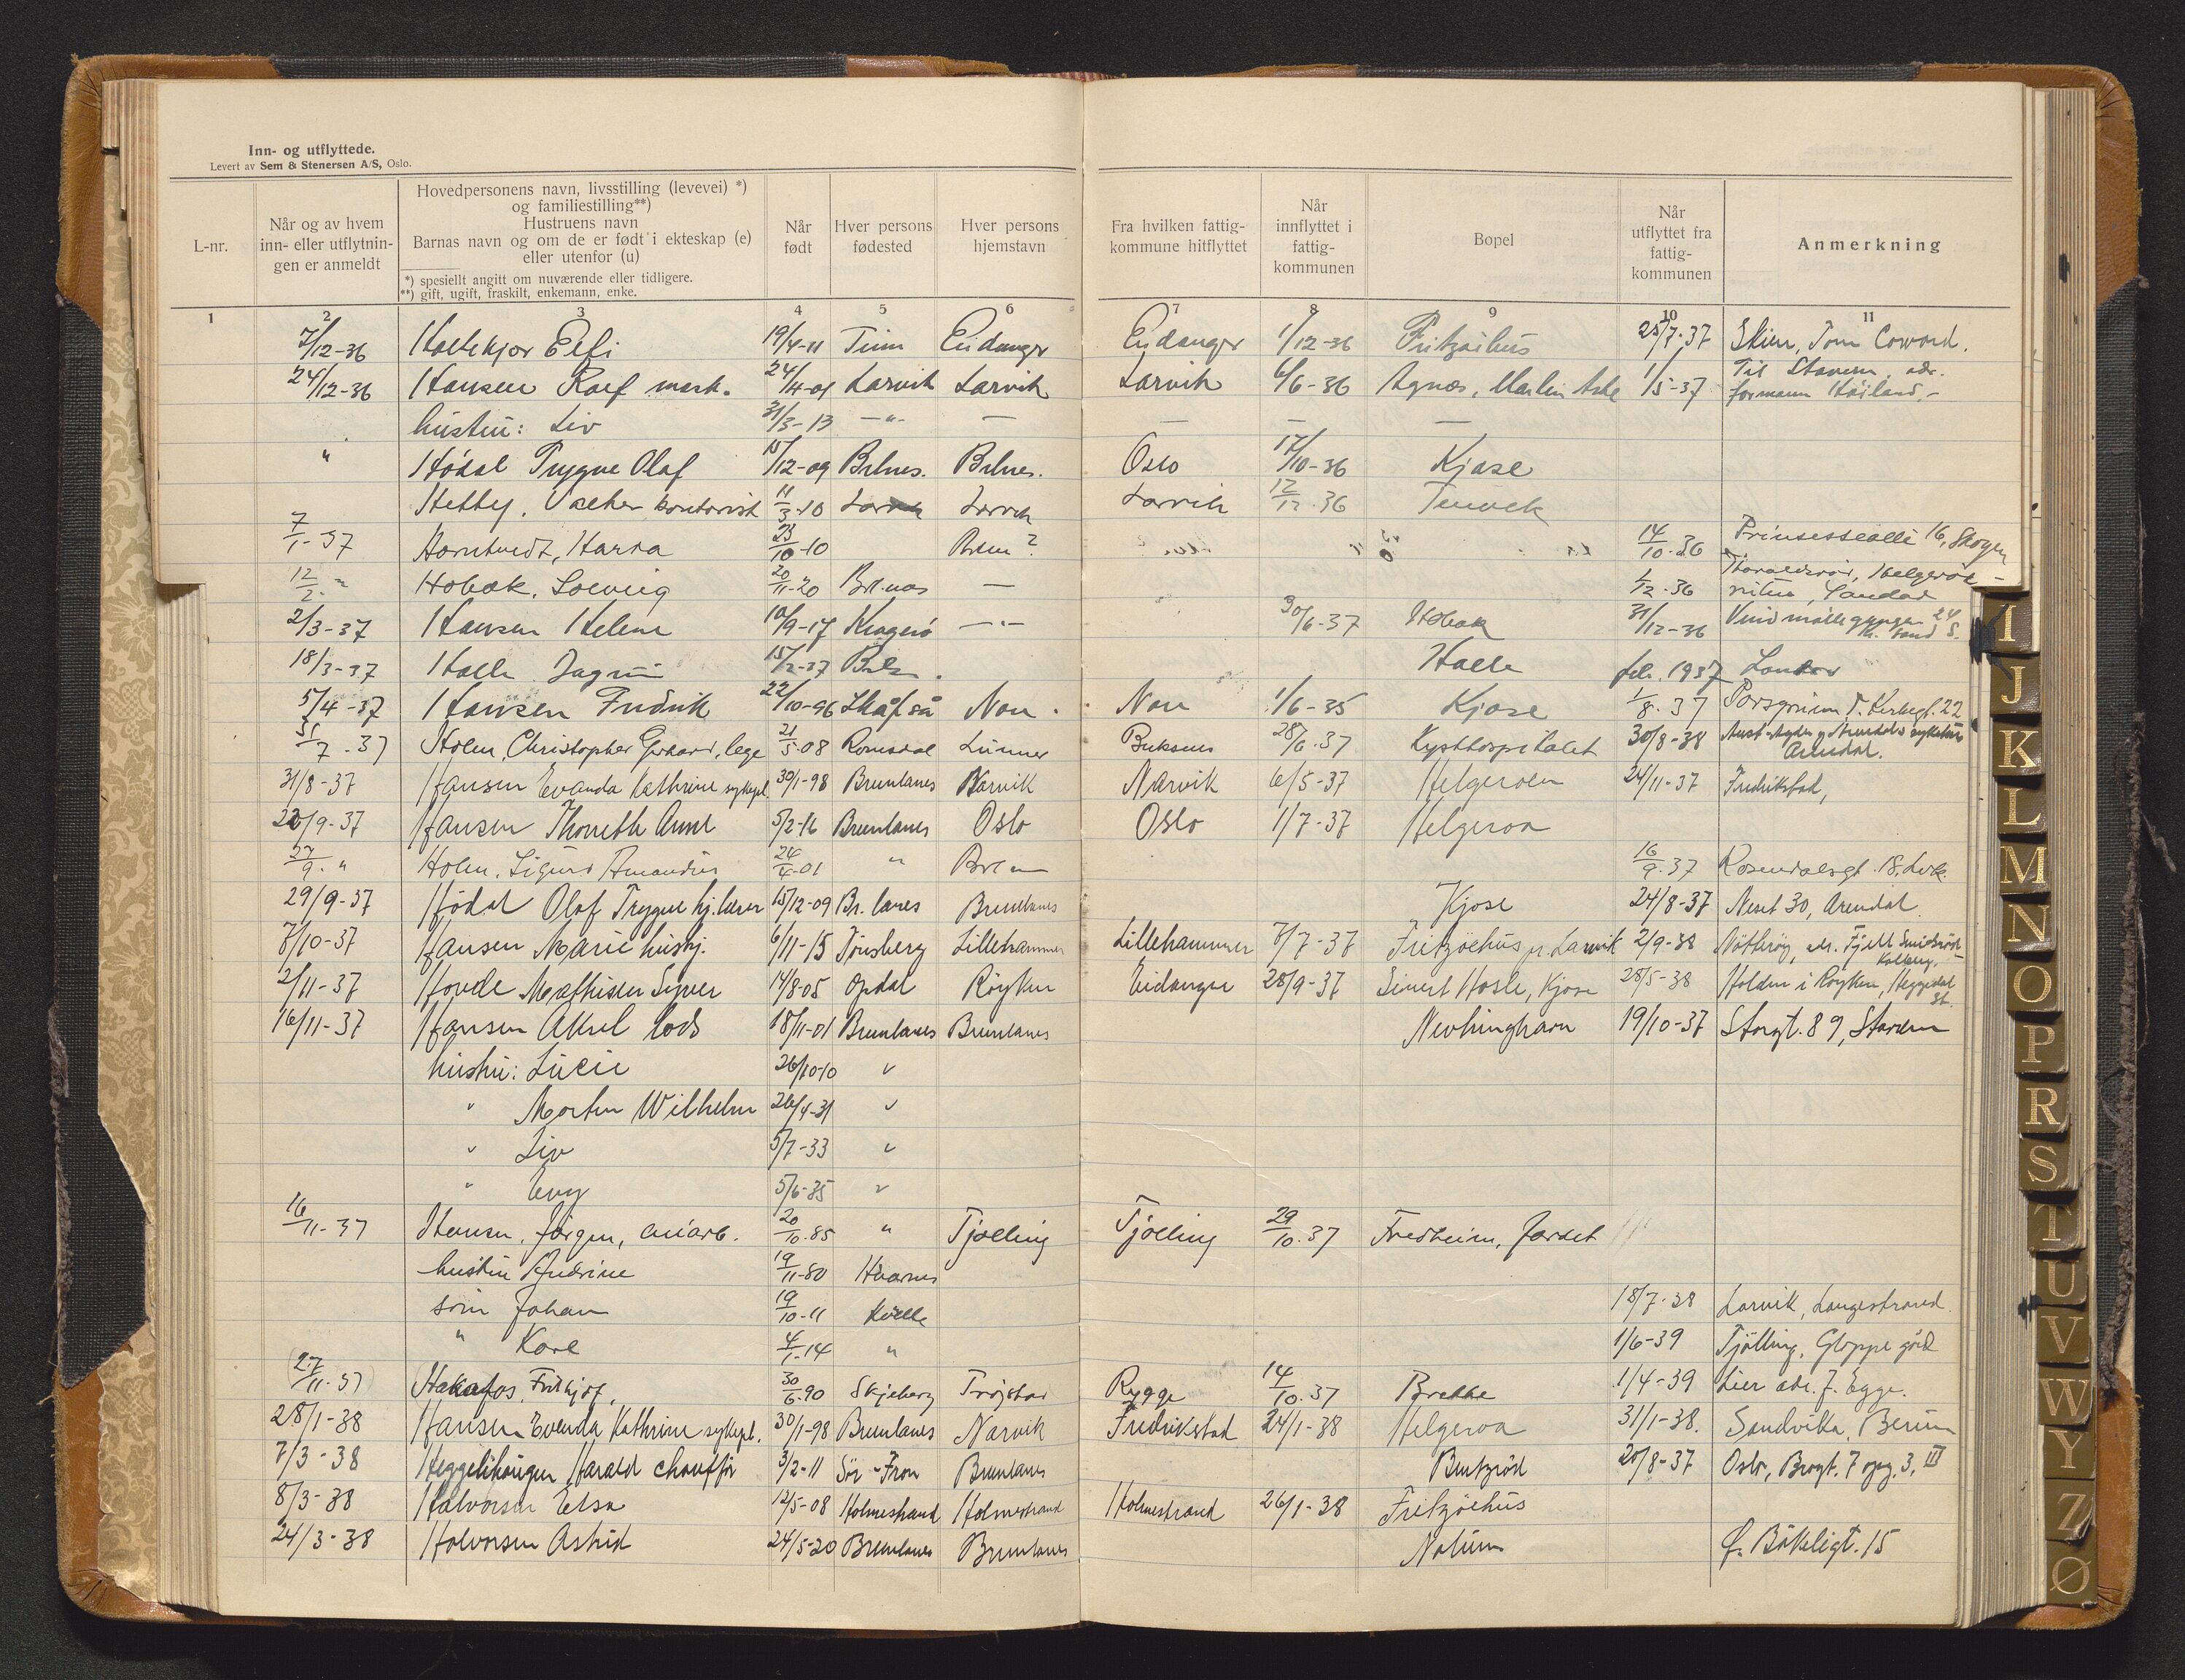 Inn- og utflyttede.
Levert av Sem & Stenersen A/S, Oslo.
L-nr.
Når og av hvem inn- eller utflytnin- gen er anmeldt
Hovedpersonens navn, livsstilling (levevei) *)
og familiestilling**)
Hustruens navn
Barnas navn og om de er født i ekteskap (e)
eller utenfor (u)
*) spesiellt angitt om nuværende eller tidligere.
**) gift, ugift, fraskilt, enkemann, enke.
Når født
Hver persons fødested
Hver persons hjemstavn
Fra hvilken fattig- kommune hitflyttet
Når innflyttet i fattig- kommunen
Bopel
Når utflyttet fra fattig- kommunen
Anmerkning
1 2 3 4 5 6 7 8 9 10 11
7/12-36 Elfi 19/4-11 Tinn Eidanger Eidanger 1/12-36 Fritzøihus 25/7-37 Skien, Tom
24/12-36 Hansen Rolf mask. 24/4-01 Larvik Larvik Larvik 6/6-36 Agnes, 1/5-37 Til Stavern, adr. formann
hustru: Liv 31/3-13 -"- — — — —
" Hödal Trygve Olaf 15/12-09 Brlnes. Brlnes. Oslo 17/10-36 Kjose
kontorist 11/3-10 Larvik Larvik 12/12-36
7/1-37 23/10-10 14/10-36 Prinsessealle 16, Skogen
12/2-" Hobæk, Solveig 20/11-20 — 1/12-36 Helgeroa
2/3-37 Hansen Helene 10/9-17 Kragerö -"- 30/6-37 Hobæk 31/12-36 24
18/3-37 Halle 15/2-37 Halle feb. 1937
5/4-37 Hansen Fredrik 22/10-96 Skåfså Non Non 1/6-35 Kjose 1/8-37 Porsgrunn, 22
31/7-37 Holm, Christopher lege 21/5-08 Romsdal Lunner 28/6-37 Kysthospitalet 30/8-38 Aust-Agder Arendal.
31/8-37 Hansen Evanda Kathrine sykepl. 30/1-98 Brunlanes Narvik Narvik 6/5-37 Helgeroen 24/11-37 Fredrikstad,
20/9-37 Hansen Anne 5/2-16 Brunlanes Oslo Oslo 1/7-37 Helgeroa
27/9-" Holm, Sigurd Amandus 24/4-01 " 16/9-37 Rosendalsgt. 18, Lvk.
29/9-37 Hødal Olaf Trygve hj.lærer 15/12-09 Br.lanes Brunlanes Kjose 24/8-37 Neset 30, Arendal
7/10-37 Hansen Marie hushj. 6/11-15 Tönsberg Lillehammer Lillehammer 7/7-37 Fritzöehus pr. Larvik 2/9-38 Nötteröy, adr. Fjell
2/11-37 Hovde Mathisen Syver 14/8-05 Opdal Röyken Eidanger 28/9-37 Kjose 28/5-38 Holdm i Röyken, Heggedal st.
16/11-37 Hansen Aksel lods 18/11-01 Brunlanes Brunlanes Nevlunghavn 19/10-37 Storgt. 89, Stavern
hustru: Lucie 26/10-10 "
" Morten Wilhelm 26/4-31 "
" Liv 5/7-33 "
" Evy 5/6-35 "
16/11-37 Hansen, Jörgen, 20/10-85 " Tjølling Tjølling 29/10-37 Fredheim, Jordet
hustru Andrine 19/11-80 Hvarnes
sön Johan 19/10-11 18/7-38 Larvik, Langestrand.
" Kore 4/1-14 " 1/6-39 Tjölling, Gloppe gård
(27/11-37) Fritjof, 30/6-90 Skjeberg Trøgstad Rygge 14/10-37 Brekke 1/4-39 Lier adr. J. Egge.
28/1-38 Hansen Evenda Kathrine sykepl. 30/1-98 Brunlanes Narvik Fredrikstad 24/1-38 Helgeroa 31/1-38. Sandvika, Berum
7/3-38 Harald chauffør 3/2-11 Sör-Fron Brunlanes 20/8-37 Oslo, Brogt. 7 opg. 3, III
8/3-38 Halvorsen Elsa 12/5-08 Holmestrand Holmestrand Holmestrand 26/1-38 Fritzöehus
24/3-38 Halvorsen Astrid 24/5-20 Brunlanes Brunlanes Nalum Bökeligt. 15
I
J
K
L
M
N
O
P
R
S
T
U
V
W
Y
Z
Ø